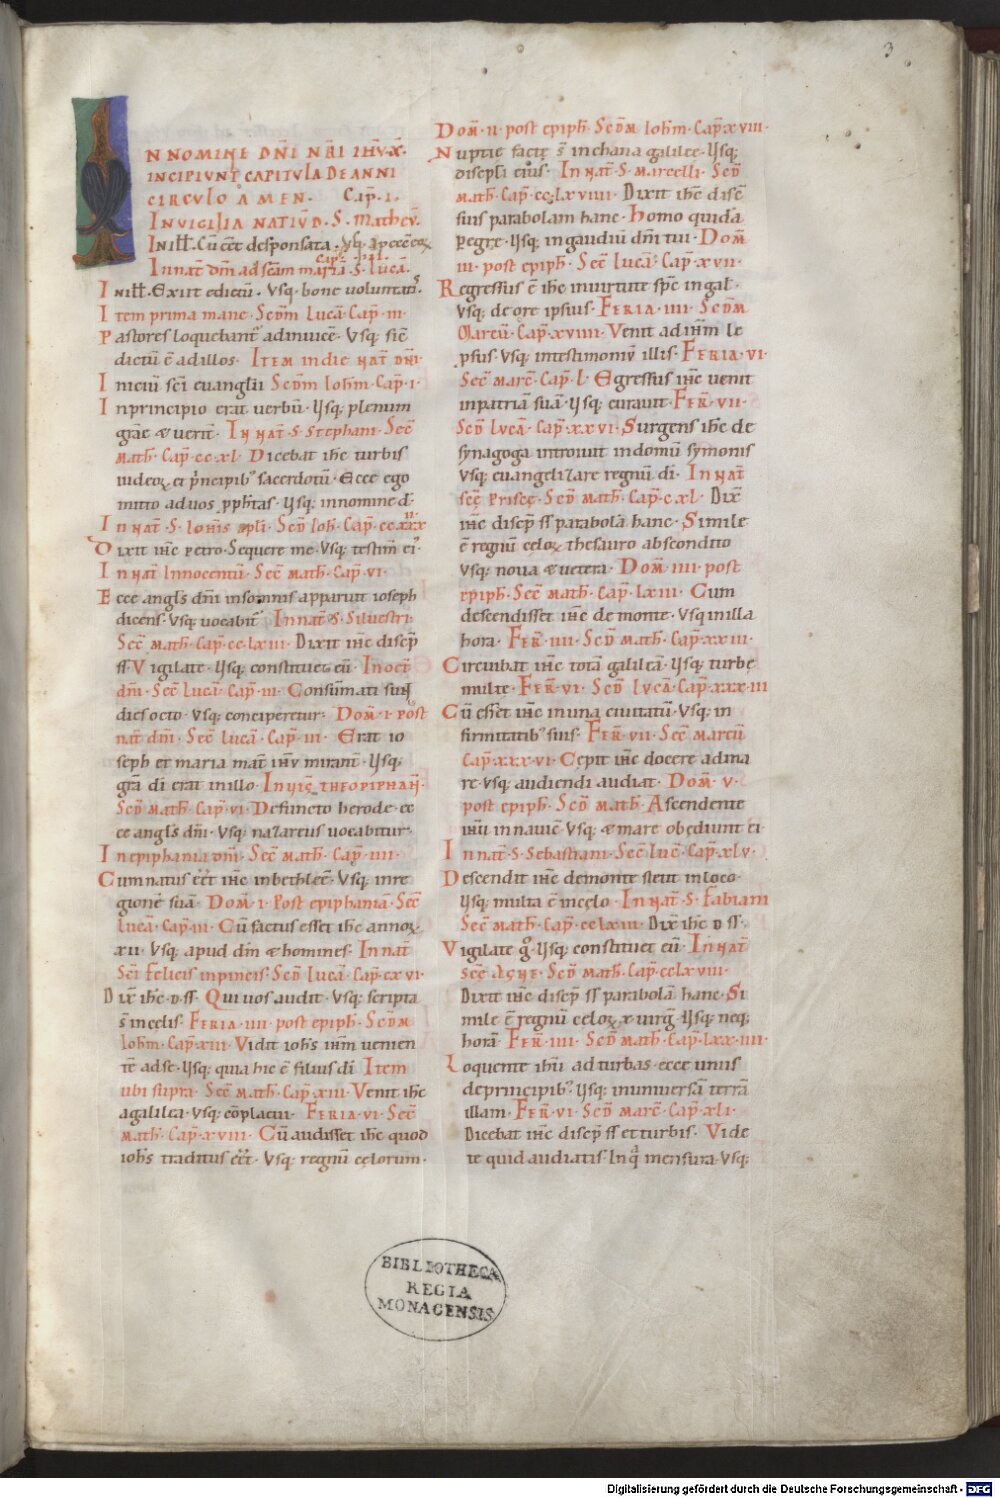 3
IN NOMINE DN̄I NR̄I IHV̄ X̄
INCIPIUNT CAPITULA DE ANNI
CIRCULO AMEN. Cap̄. I.
IN VIGILIA NATIVD. S. Matheū.
IN ill̄. Cū eēt desponsata. Usq.
In nat̄ dn̄i ad scām mariā. S. Lucā.
In ill̄. Exiit edictū. Usq. bone voluntat̄.
Item prima mane. Scdm Lucā. Cap̄. III.
Pastores loquebant̄ adinvicē. Usq; sic̄
dictū ē ad illos. ITEM in die NAT̄ DN̄I.
Iniciū sc̄i euanglii Scdm Ioh̄m. Cap̄. I.
In principio erat verbū. Usq; plenum
grāe & verit̄. IN NAT̄ S. Stephani. Sec̄
Math̄. Cap̄. cc.xl. Dicebat ih̄c turbis
iudeoꝝ et p̄ncipib; sacerdotū. Ecce ego
mitto ad vos pph̄tas. Usq; in nomine d̄.
In nat̄. S. Ioh̄is apl̄i. Scd̄ Ioh̄. Cap̄. cc.xxx
Dixit ih̄c petro. Sequere me. Usq; testim̄ ei.
In nat̄ Innocentū. Sec̄ math̄. Cap̄. VI.
Ecce angl̄s dn̄i in somnis apparuit ioseph
dicens. Usq; vocabit̄. In nat̄ S. Silvestri.
Sec̄ Math̄. Cap̄. cc.lxiii. Dixit ih̄c discip̄
s̄s̄. Vigilate. Usq; constituet eū. In oct̄
dn̄i. Sec̄ Lucā. Cap̄. III. Consūmati sun̄t
dies octo. Usq; conciperetur. Dom̄. I. post
nat̄ dn̄i. Sec̄ Lucā. Cap̄. III. Erat io
seph et maria mat̄ ih̄u mirant̄. Usq;
grā di erat in illo. In vig̅ THEOPIPHAN̄.
Scd̄ Math̄. Cap̄. VI. Defuncto herode. ec
ce angl̄s dn̄i. Usq; nazareus vocabitur.
In epiphania dn̄i. Sec̄ math̄. Cap̄. IIII.
Cum natus eēt ih̄c in bethleē. Usq; in re
gionē suā. Dom̄. I. Post epiphaniā. Sec̄
Lucā. Cap̄. III. Cū factus esset ih̄c annoꝝ
xii. Usq; apud dm̄ & homines. In nat̄
Sc̄i Felicis in pincis. Scd̄ Lucā. Cap̄. cxvi.
Dix̄ ih̄c. d. s̄s̄. Qui vos audit. Usq; scripta
s̄ in celis. FERIA. IIII. post epiph̄. Scdm
Ioh̄m. Cap̄. XIII. Vidit ioh̄s ih̄m venien
tē ad se. Usq; quia hic ē filius di. Item
ubi supra. Sec̄ math̄. Cap̄. XIII. Venit ih̄c
a galilea. Usq; cōplacui. FERIA. VI. Sec̄
Math̄. Cap̄. xviii. Cū audisset ih̄c quod
ioh̄s traditus eēt. Usq; regnū celorum.
Dom̄. II. post epiph̄. Scdm Ioh̄m. Cap̄. xviii.
Nuptie facte s̄ in chana galilee. Usq;
discipli eius. In nat̄. S. Marcelli. Scd̄
Math̄. Cap̄. cc.lxviiii. Dixit ih̄c disc̄
suis parabolam hanc. Homo quidā
peregre. Usq; in gaudiū dn̄i tui. Dom̄
III. post epiph̄. Sec̄ Lucā. Cap̄. xvii.
Regressus ē ih̄c in virtute sp̄c in gal̄.
Usq; de ore ipsius. FERIA. IIII. Scdm
Marcū. Cap̄. xviiii. Venit ad ih̄m le
psus. Usq; in testimoniū illis. FERIA. VI.
Sec̄ Marc̄. Cap̄. L. Egressus ih̄c venit
in patriā suā. Usq; curavit. FER̄. VII.
Scd̄ Lucā. Cap̄. xxvi. Surgens ih̄c de
synagoga introivit in domū symonis
Usq; euangelizare regnū di. In nat̄
Scē Priscę. Scd̄ Math̄. Cap̄. cxl. Dix̄
ih̄c discip̄ s̄s̄ parabolā hanc. Simile
ē regnū celoꝝ thesauro abscondito
Usq; nova & vetera. Dom̄. IIII. post
epiph̄. Sec̄ Math̄. Cap̄. lxiii. Cum
descendisset ih̄c de monte. Usq in illa
hora. FER̄. IIII. Scd̄ Math̄. Cap̄. xxiii.
Circuibat ih̄c totā galileā. Usq; turbę
multę. FER̄. VI. Scd̄ Lucā. Cap̄. xxxiii
Cū esset ih̄c in una civitatū. Usq; in
firmitatib; suis. FER̄. VII. Sec̄ Marcū
Cap̄. xxxvi. Cepit ih̄c docere ad ma
re. Usq; audiendi audiat. Dom̄. V.
post epiph̄. Scd̄ Math̄. Ascendente
ih̄u in navic̄. Usq; & mare obediunt ei.
In nat̄. S. Sebastiani. Sec̄ Luc̄. Cap̄. xlv.
Descendit ih̄c de monte stetit in loco.
Usq; multa ē in cęlo. In nat̄. S. Fabiani
Sec̄ Math̄. Cap̄. cc.lxiii. Dix̄ ih̄c d. s̄s̄.
Vigilate g̊. Usq; constituet eū. In nat̄
Scē Agnę. Scd̄ Math̄. Cap̄. cc.lxviii.
Dixit ih̄c discip̄ s̄s̄ parabolā hanc. Si
mile ē regnū celoꝝ x virg̅. Usq; neq;
horā. FER̄. IIII. Scd̄ Math̄. Cap̄. lxxiiii.
Loquente ih̄u ad turbas. ecce unus
de principib;. Usq; in universā terrā
illam. FER̄. VI. Scd̄ Marc̄. Cap̄. xli.
Dicebat ih̄c discip̄ s̄s̄ et turbis. Vide
te quid audiatis. In q̄ mensura. Usq;
BIBLIOTHECA
REGIA
MONACENSIS
Digitalisierung gefördert durch die Deutsche Forschungsgemeinschaft - DFG